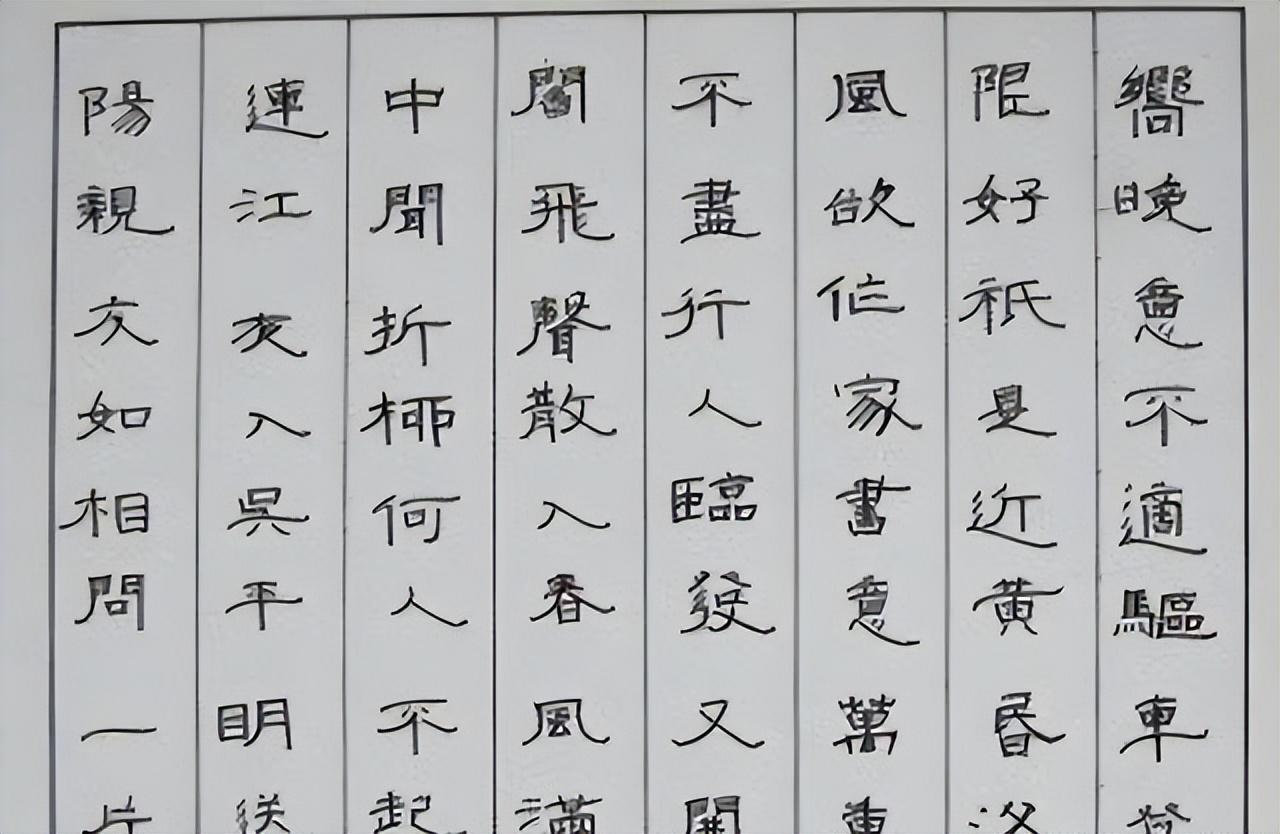 嚮晚意不適驅車登
限好祇是近黃昏洛
風欲作家書意萬重
不盡行人臨發又開
聞飛聲散入春風滿
中聞折柳何人不起
連江夜入吳平明送
陽親友如相問一片